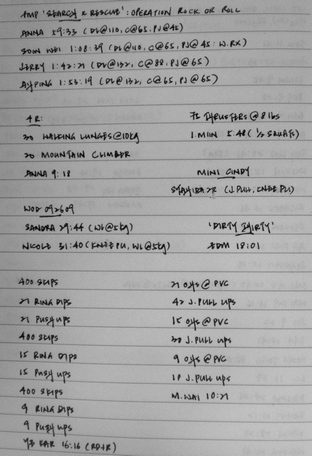 AMP 'SEARCH & RESCUE': OPERATION ROCK OR ROLL
ANNA 59:33 (DL@110, C@65, PJ@45)
SOON WEI 1:08:39 (DL@110, C@65, PJ@45: W.RX)
JERRY 1:42:21 (DL@132, C@88, PJ@65)
AIPING 1:53:19 (DL@132, C@65, PJ@65)
4R:
20 WALKING LUNGES@10kg
20 MOUNTAIN CLIMBER
ANNA 9:18
75 THRUSTERS @ 8 lbs
1 MIN 5:48 (1/2 SQUATS)
MINI CINDY
2R (J.PULL, KNEE PU)
WOD 092609
SANDRA 29:44 (WL@5kg)
NICOLE 31:40 (KNEE PU, WL@5kg)
'DIRTY THIRTY'
EDM 18:01
400 SKIPS
21 RING DIPS
21 PUSH UPS
400 SKIPS
15 RING DIPS
15 PUSH UPS
400 SKIPS
9 RING DIPS
9 PUSH UPS
16:16
21 OHS @ PVC
42 J.PULL UPS
15 OHS @ PVC
30 J.PULL UPS
9 OHS @ PVC
18 J.PULL UPS
M.WAI 10:21